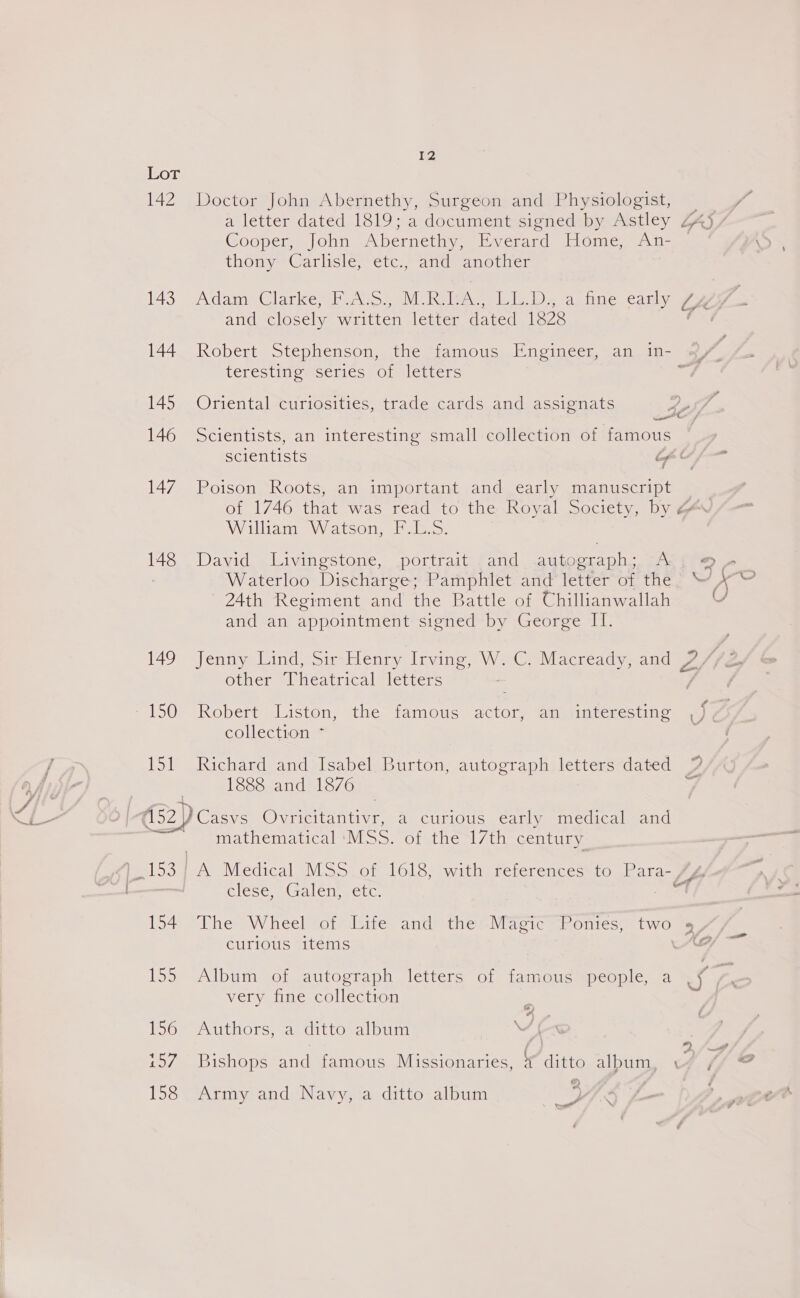 12
Lot
142 Doctor John Abernethy, Surgeon and Physiologist,
a letter dated 1819; a document signed by Astley
Cooper, John Abernethy, Everard Home, An-
thony Carlisle, etc., and another
143 Adam Clarke, F.A.S., M.R.I.A., LL.D., a fine early
and closely written letter dated 1828
144 Robert Stephenson, the famous Engineer, an in-
teresting series of letters
145 Oriental curiosities, trade cards and assignats
146 Scientists, an interesting small collection of famous
scientists
147 Poison Roots, an important and early manuscript
of 1746 that was read to the Royal Society, by
William Watson, F.L.S.
148 David Livingstone, portrait and autograph; A
Waterloo Discharge; Pamphlet and letter of the
24th Regiment and the Battle of Chillianwallah
and an appointment signed by George II.
149 Jenny Lind, Sir Henry Irving, W. C. Macready, and
other Theatrical letters
150 Robert Liston, the famous actor, an interesting
collection
151 Richard and Isabel Burton, autograph letters dated
1888 and 1876
152 Casvs Ovricitantivr, a curious early medical and
mathematical MSS. of the 17th century
153 A Medical MSS of 1618, with references to Para-
clese, Galen, etc.
154 The Wheel of Life and the Magic Ponies, two
curious items
155 Album of autograph letters of famous people, a
very fine collection
156 Authors, a ditto album
157 Bishops and famous Missionaries, a ditto album,
158 Army and Navy, a ditto album